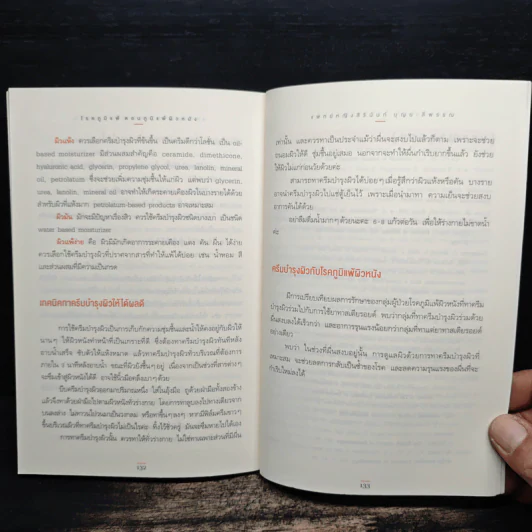 โรคภูมิแพ้ หอบภูมิแพ้ผิวหนัง
ผิวแห้ง ควรเลือกครีมบำรุงผิวที่ข้นขึ้น เป็นครีมดีกว่าโลชั่น เป็น oil-
based moisturizer มีส่วนผสมสำคัญคือ ceramide, dimethicone,
hyaluronic acid, glycerin, propylene glycol, urea, lanolin, mineral
oil, petrolatum ซึ่งจะช่วยเพิ่มความชุ่มชื้นให้แก่ผิว แต่พบว่า glycerin,
urea, lanolin, mineral oil อาจทำให้เกิดระคายเคืองผิวในบางรายได้ด้วย
สำหรับผิวที่แห้งมาก petroleum-based products อาจเหมาะสม
ผิวมัน มักจะมีปัญหาเรื่องสิว ควรใช้ครีมบำรุงผิวชนิดบางเบา เป็นชนิด
water based moisturizer
ผิวแพ้ง่าย คือ ผิวมีมักเกิดอาการระคายเคือง แดง คัน ผื่น ได้ง่าย
ควรเลือกใช้ครีมบำรุงผิวที่ปราศจากสารที่ทำให้แพ้ได้บ่อย เช่น น้ำหอม สี
และส่วนผสมที่มีความเป็นกรด
เทคนิคทาครีมบำรุงผิวให้ได้ผลดี
การใช้ครีมบำรุงผิวเป็นการเก็บกักความชุ่มชื้นและน้ำให้คงอยู่กับผิวให้
นานๆ ให้ผิวหนังทำหน้าที่เป็นเกราะที่ดี จึงต้องทาครีมบำรุงผิวทันทีหลัง
อาบน้ำเสร็จ ซับตัวให้แห้งหมาด แล้วทาครีมบำรุงผิวทั่วบริเวณที่ต้องการ
ภายใน 3 นาทีหลังอาบน้ำ ขณะที่ผิวยังชื้นๆ อยู่ เนื่องจากเป็นช่วงที่สารต่างๆ
จะซึมเข้าสู่ผิวหนังได้ดี อาจใช้นิ้วมือคลึงเบาๆ ด้วย
บีบครีมบำรุงผิวออกมาปริมาณหนึ่ง ใส่ในอุ้งมือ ถูด้วยฝ่ามือทั้งสองข้าง
แล้วจึงทาด้วยฝ่ามือไปตามผิวหนังทั่วร่างกาย โดยการทาลูบลงไปทางเดียวจาก
บนลงล่าง ไม่ควรวนไปวนมาเป็นวงกลม หรือทาขึ้นๆ ลงๆ หากมีฟิล์มครีมขาวๆ
ขึ้นบริเวณผิวที่ทาครีมบำรุงผิวไม่เป็นไรค่ะ ทิ้งไว้ชั่วครู่ มันจะซึมหายไปได้เอง
การทาครีมบำรุงผิวนั้น ควรทาให้ทั่วร่างกาย ไม่ใช่ทาเฉพาะส่วนที่มีผื่น
132
เท่านั้น และควรทาเป็นประจำแม้ว่าผื่นจะสงบไปแล้วก็ตาม เพราะจะช่วย
ถนอมผิวได้ดี ชุ่มชื้นอยู่เสมอ นอกจากจะทำให้ผื่นกำเริบยากขึ้นแล้ว ยังช่วย
ให้ผิวไม่แก่ก่อนวัยด้วยค่ะ
สามารถทาครีมบำรุงผิวได้บ่อยๆ เมื่อรู้สึกว่าผิวแห้งหรือคัน บางราย
อาจนำครีมบำรุงผิวไปแช่ตู้เย็นไว้ เพราะเมื่อนำมาทา ความเย็นจะช่วยสงบ
อาการคันได้ด้วย
อย่าลืมดื่มน้ำมากๆ ด้วยนะคะ ๖-๘ แก้วต่อวัน เพื่อให้ร่างกายไม่ขาดน้ำ
ค่ะ
ครีมบำรุงผิวกับโรคภูมิแพ้ผิวหนัง
มีการเปรียบเทียบผลการรักษาของกลุ่มผู้ป่วยโรคภูมิแพ้ผิวหนังที่ทาครีม
บำรุงผิวร่วมไปกับการใช้ยาทาสเตียรอยด์ พบว่ากลุ่มที่ทาครีมบำรุงผิวร่วมด้วย
ผื่นสงบลงได้เร็วกว่า และอาการรุนแรงน้อยกว่ากลุ่มที่ทาแต่ยาทาสเตียรอยด์
อย่างเดียว
พบว่า ในช่วงที่ผื่นสงบอยู่นั้น การดูแลผิวด้วยการทาครีมบำรุงผิวที่
เหมาะสม จะช่วยลดการกลับเป็นซ้ำของโรค และลดความรุนแรงของผื่นที่จะ
กำเริบใหม่ลงได้
133